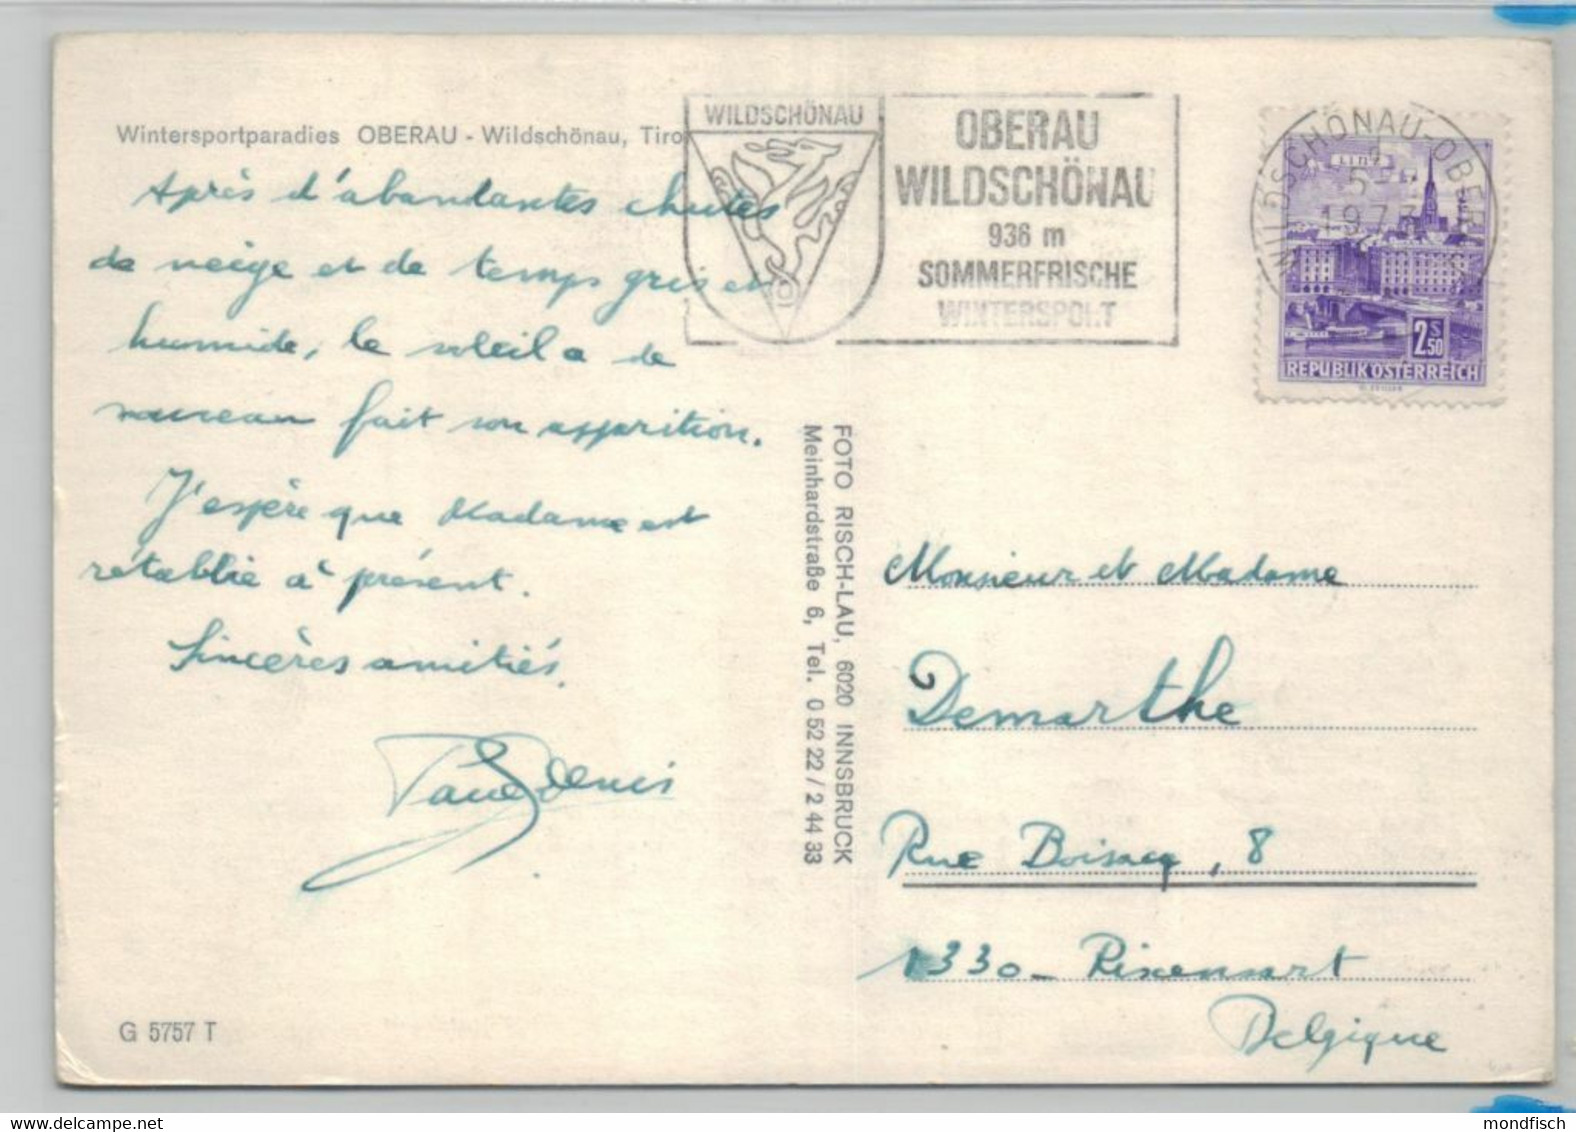 Wintersportparadies OBERAU - Wildschönau, Tirol
Après d'abandantes chutes
de neige et de temps gris et
humide, le soleil a de
nouveau fait son apparition.
J'espère que Madame est
rétablie à présent.
Sincères amitiés.
Paul Denis
G 5757 T
WILDSCHÖNAU
OBERAU
WILDSCHÖNAU
936 m
SOMMERFRISCHE
WINTERSPORT
WILDSCHÖNAU-OBERAU
LINZ
2 S 50
REPUBLIK ÖSTERREICH
FOTO RISCH-LAU, 6020 INNSBRUCK
Meinhardstraße 6, Tel. 0 52 22 / 2 44 33
Monsieur et Madame
Demarthe
Rue Boisacq, 8
1330 - Rixensart
Belgique
mondfisch